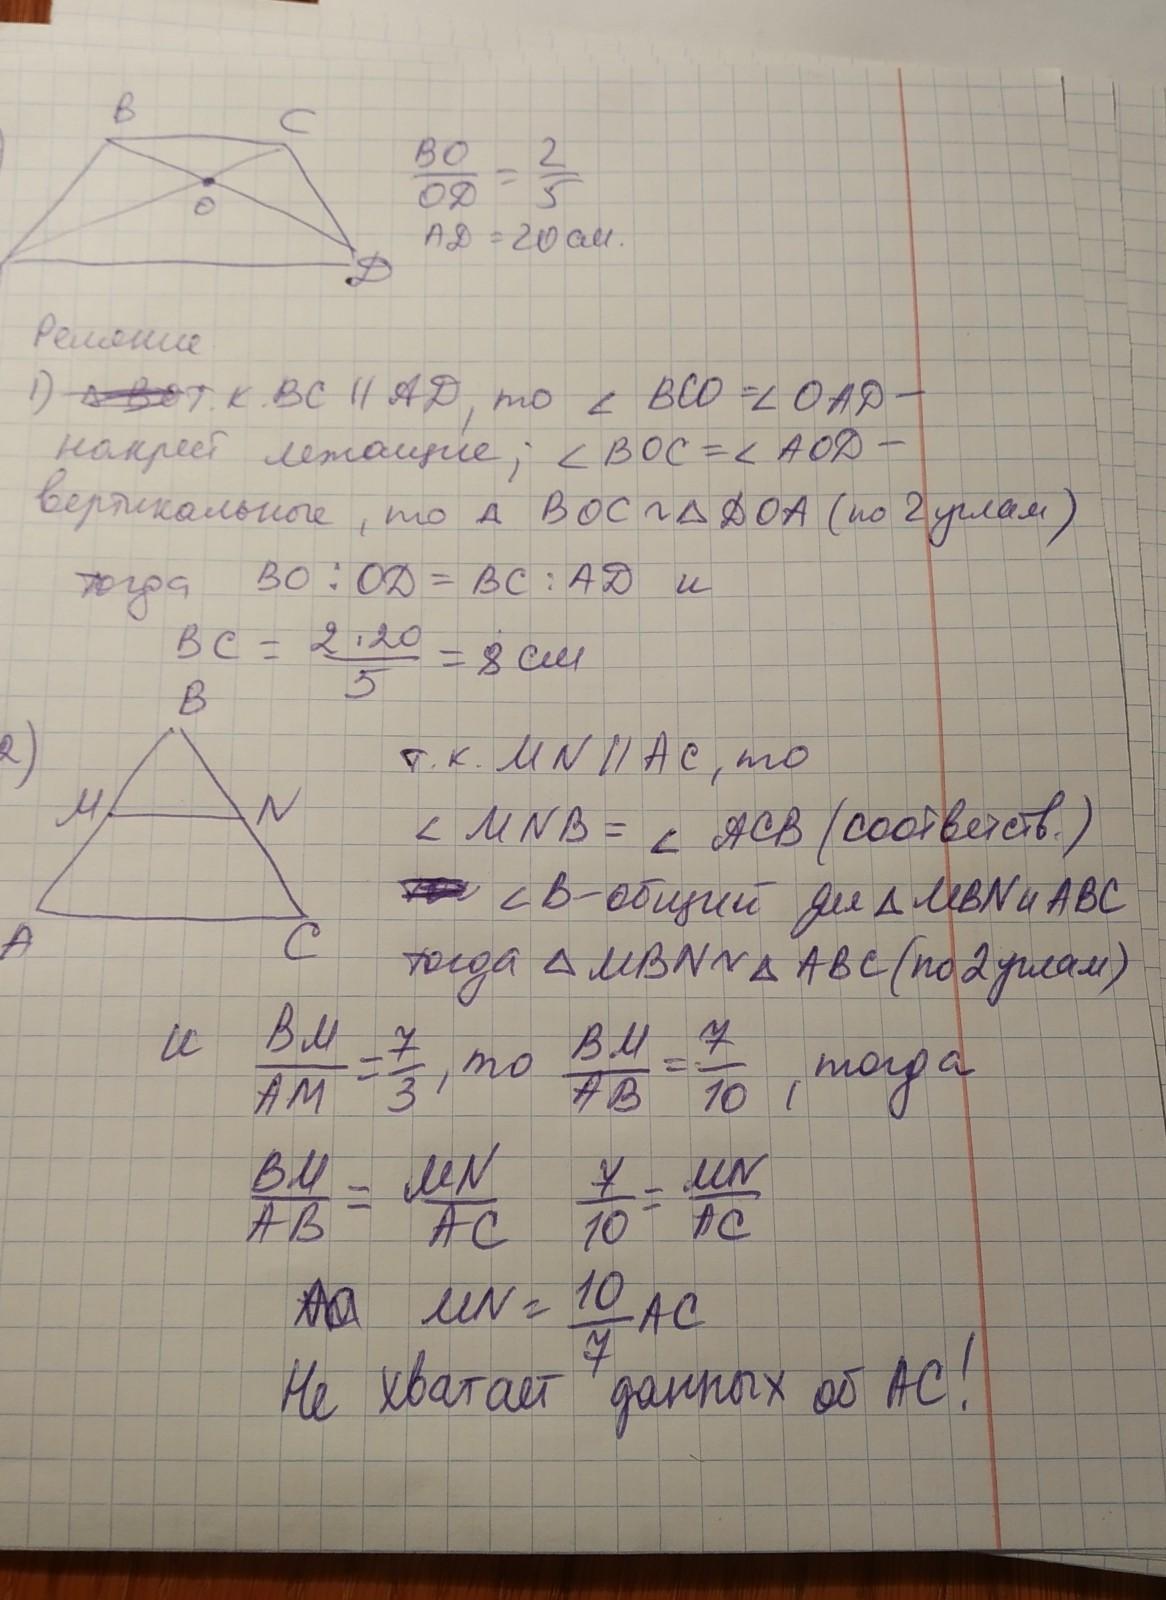 B C
O
D
BO/OD = 2/5
AD = 20 см.
Решение
1) т.к. BC || AD, то ∠ BCO = ∠ OAD –
накрест лежащие; ∠ BOC = ∠ AOD –
вертикальные, то △ BOC ~ △ DOA (по 2 углам)
тогда BO : OD = BC : AD и
BC = 2·20/5 = 8 см
2)
B
M N
A C
т.к. MN || AC, то
∠ MNB = ∠ ACB (соответств.)
∠B – общий для △ MBN и ABC
тогда △ MBN ~ △ ABC (по 2 углам)
и BM/AM = 7/3, то BM/AB = 7/10, тогда
BM/AB = MN/AC 7/10 = MN/AC
MN = 10/7 AC
Не хватает данных об AC!